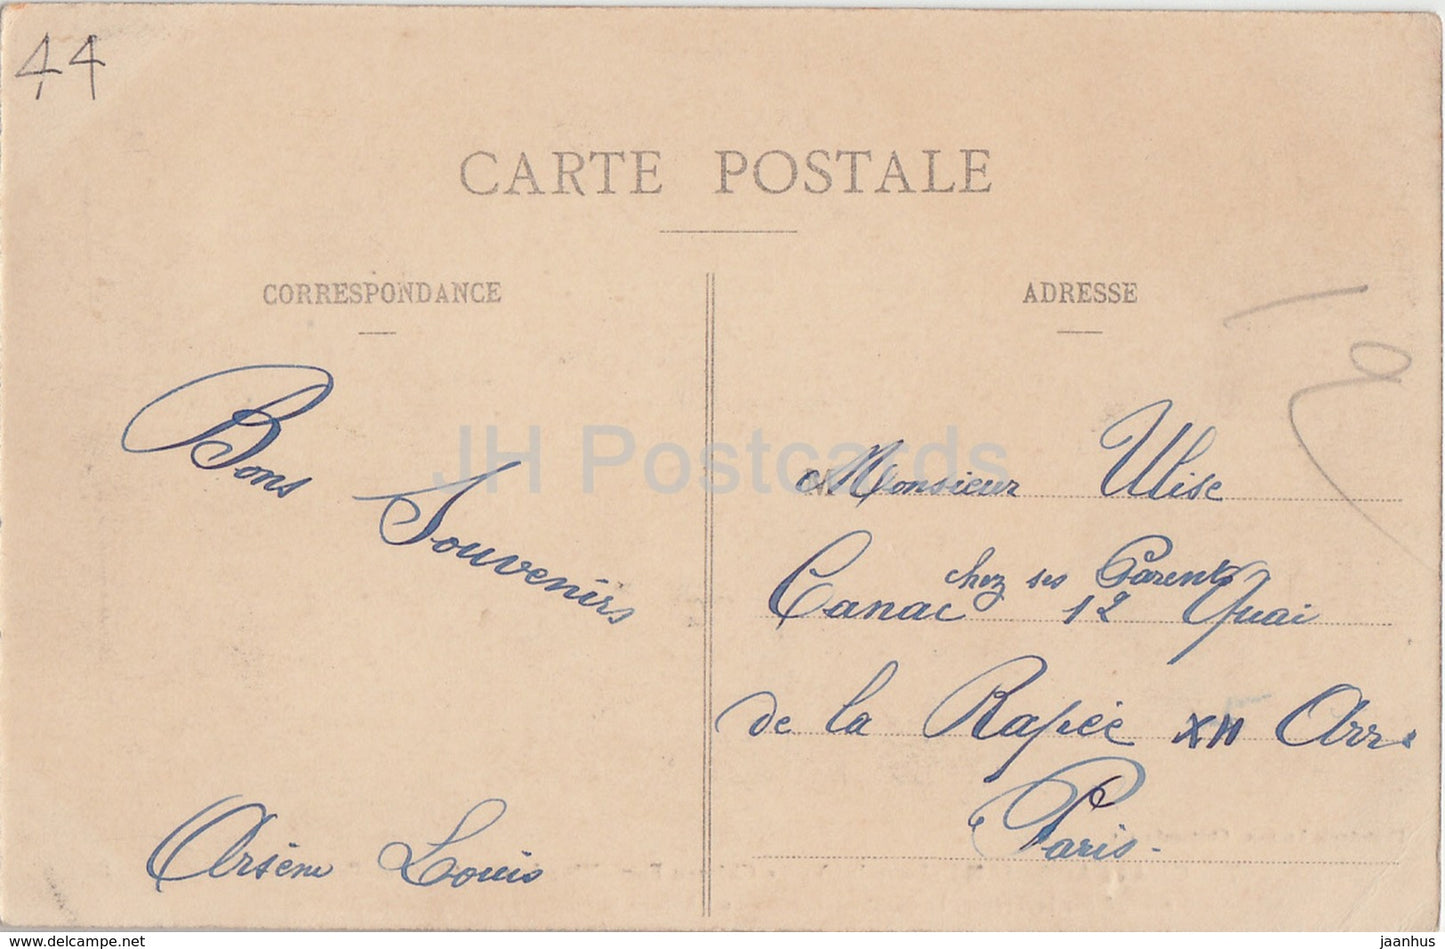 44
CARTE POSTALE
CORRESPONDANCE
ADRESSE
Bons
Souvenirs
Arsène Louis
Monsieur Ulise
chez ses Parents
Canac 12 Quai
de la Rapée XII Arr.
Paris.
JH Postcards
www.delcampe.net
jaanhus